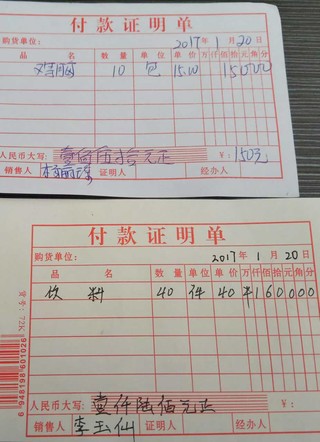 付款证明单
购货单位： 2017年1月20日
品名 数量 单位 单价 万 仟 佰 拾 元 角 分
10 包 15.00 15000
人民币大写：壹佰伍拾元正 ￥：150元
销售人 证明人 经办人
付款证明单
购货单位： 2017年1月20日
品名 数量 单位 单价 万 仟 佰 拾 元 角 分
饮料 40 件 40 ¥160000
货号：72K
6948198601026
人民币大写：壹仟陆佰元正 ￥：
销售人 李玉仙 证明人 经办人